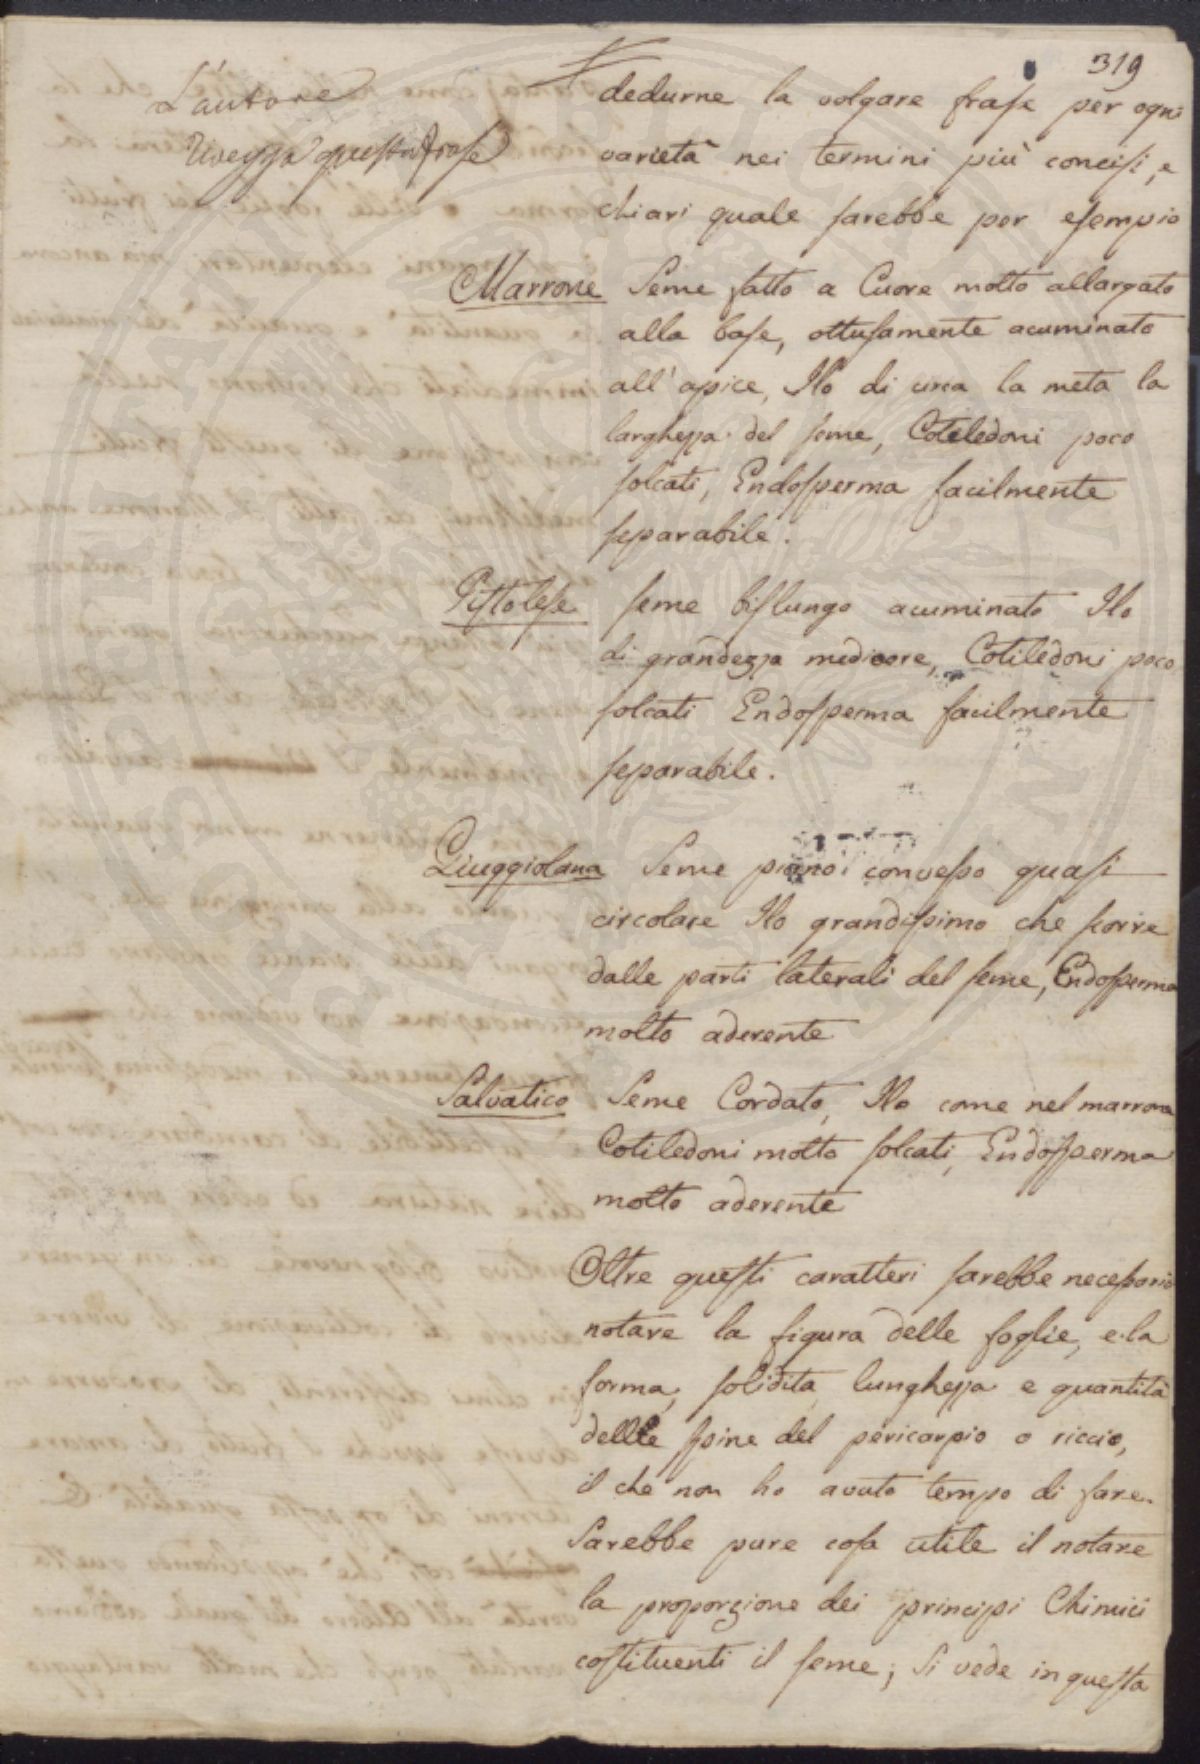 319
L'autore
rivegga questa frase
dedurne la volgare frase per ogni
varietà nei termini più concisi, e
chiari quale sarebbe per esempio
Marrone Seme fatto a Cuore molto allargato
alla base, ottusamente acuminato
all'apice, Ilo di circa la metà la
larghezza del seme, Cotiledoni poco
solcati, Endosperma facilmente
separabile.
Pistolese seme bislungo acuminato Ilo
di grandezza mediocre, Cotiledoni poco
solcati Endosperma facilmente
separabile.
Giuggiolana Seme piano convesso quasi
circolare Ilo grandissimo che scorre
dalle parti laterali del seme, Endosperma
molto aderente
Salvatico Seme Cordato, Ilo come nel marrone
Cotiledoni molto solcati, Endosperma
molto aderente
Oltre questi caratteri sarebbe necessario
notare la figura delle foglie, e la
forma, solidità, lunghezza e quantità
delle spine del pericarpio o riccio,
il che non ho avuto tempo di fare.
Sarebbe pure cosa utile il notare
la proporzione dei principi Chimici
costituenti il seme; Si vede in questa